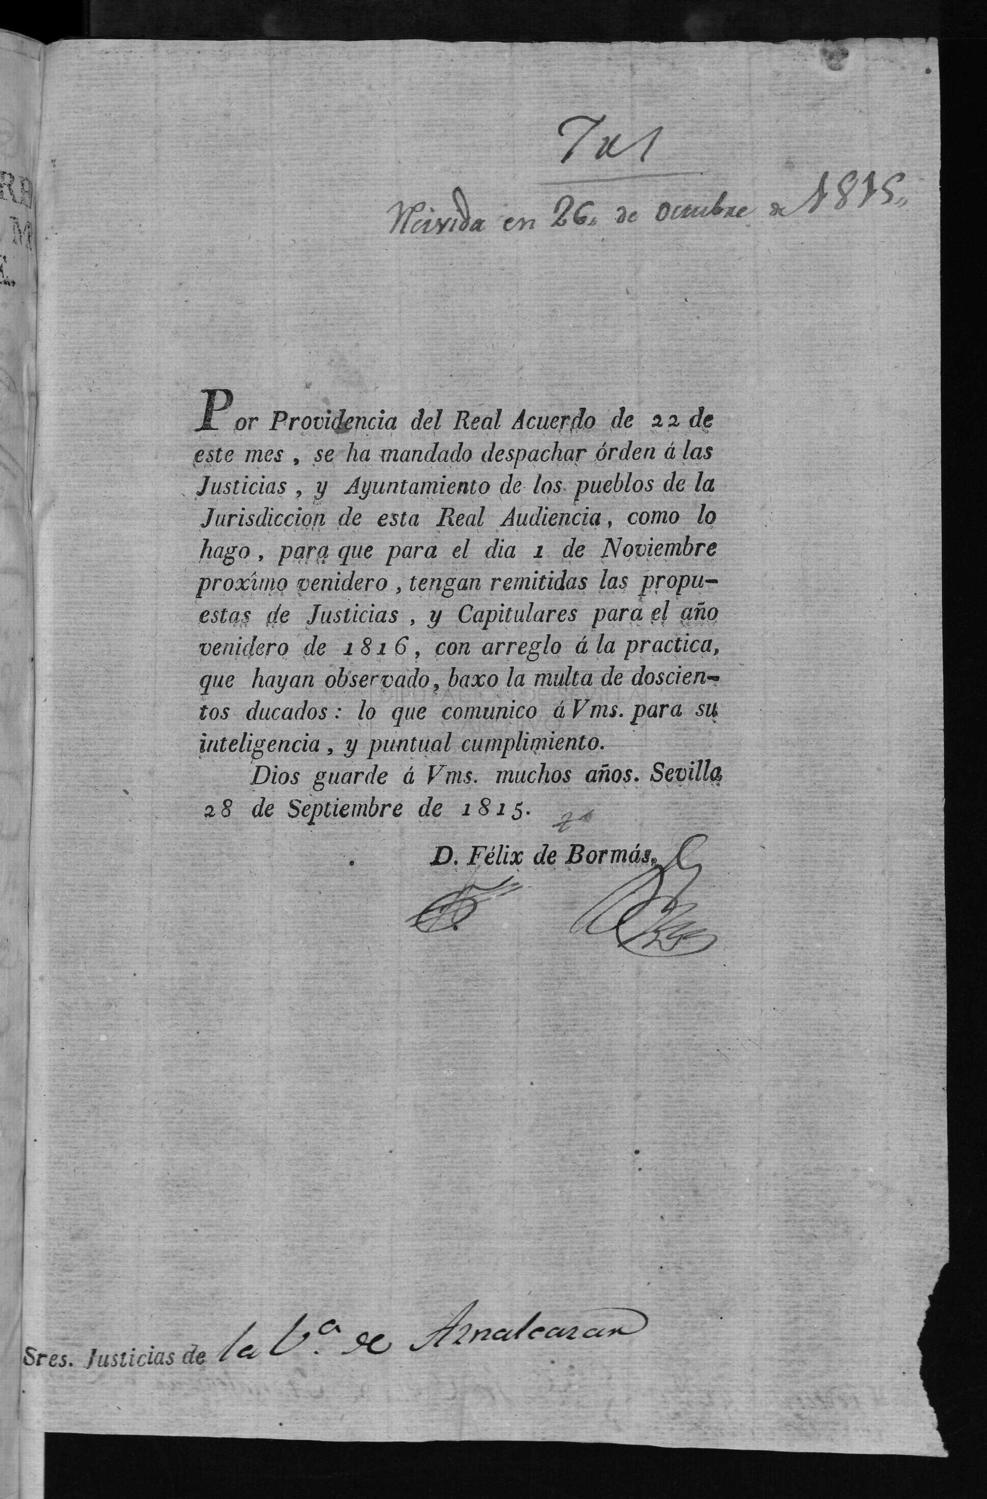 Recivida en 26,, de octubre de 1815,,
Por Providencia del Real Acuerdo de 22 de
este mes, se ha mandado despachar órden á las
Justicias, y Ayuntamiento de los pueblos de la
Jurisdiccion de esta Real Audiencia, como lo
hago, para que para el dia 1 de Noviembre
proximo venidero, tengan remitidas las propu-
estas de Justicias, y Capitulares para el año
venidero de 1816, con arreglo á la practica,
que hayan observado, baxo la multa de doscien-
tos ducados: lo que comunico á Vms. para su
inteligencia, y puntual cumplimiento.
Dios guarde á Vms. muchos años. Sevilla
28 de Septiembre de 1815.
D. Félix de Bormás.
Sres. Justicias de la V.ª de Aznalcazar